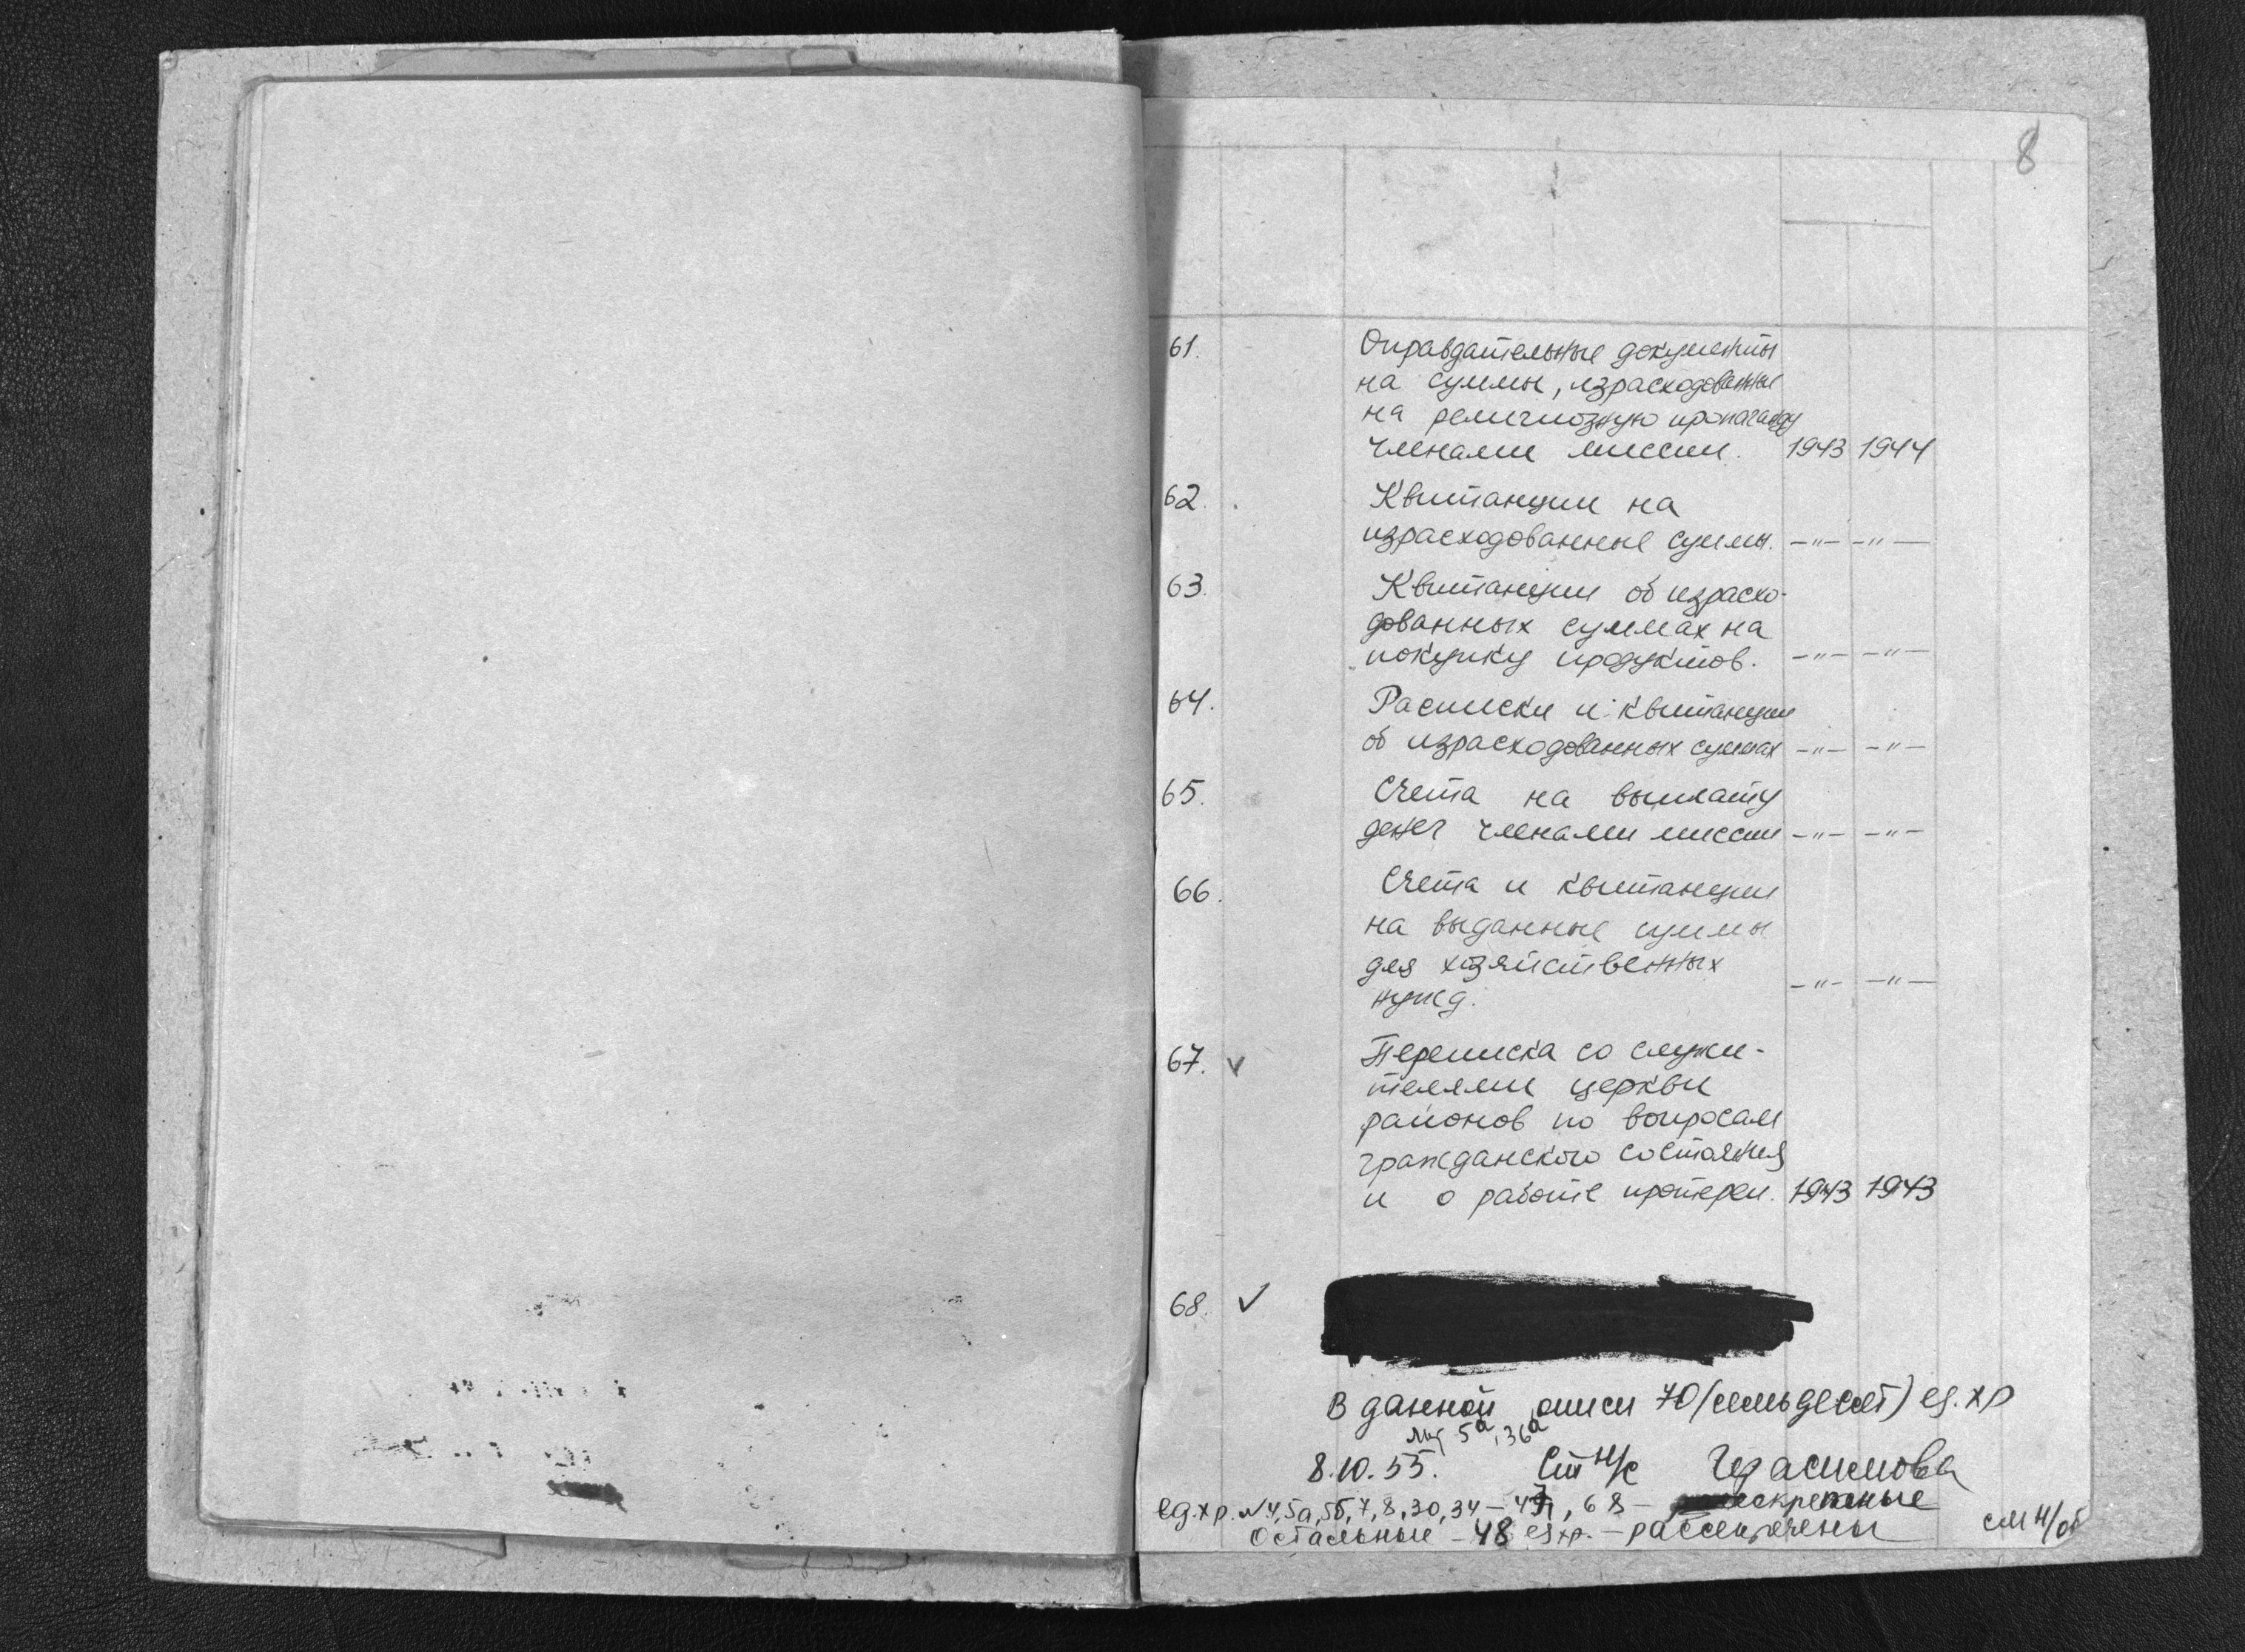 8
61. Оправдательные документы
на суммы, израсходованные
на религиозную пропаганду
членами миссии. 1943 1944
62. Квитанции на
израсходованные суммы. -"- -"-
63. Квитанции об израсхо-
дованных суммах на
покупку продуктов. -"- -"-
64. Расписки и квитанции
об израсходованных суммах -"- -"-
65. Счета на выплату
денег членами миссии -"- -"-
66. Счета и квитанции
на выданные суммы
для хозяйственных
нужд. -"- -"-
67. v Переписка со служи-
телями церкви
районов по вопросам
гражданского состояния
и о работе протереи. 1943 1943
68. v
В данной описи 70 (семьдесят) ед. хр
5а, 36а
8.10.55. Ст н/с Герасимова
ед. хр. № 4, 5а, 5б, 7, 8, 30, 34 – 47, 68 – секретные
Остальные – 48 ед хр. – рассекречены
см н/об